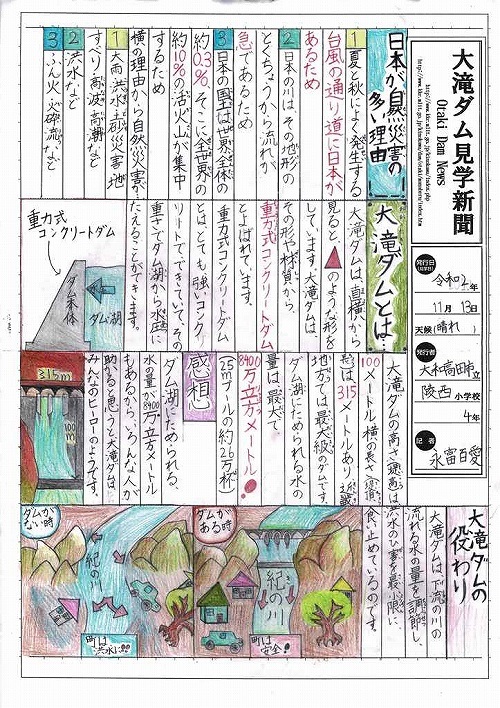 大滝ダム見学新聞
Otaki Dam News
発行日
(見学日)
令和2年
11月13日
天候(晴れ)
発行者
大和高田市立
陵西小学校
4年
記者
永富百愛
日本が自然災害の
多い理由
1 夏と秋によく発生する
台風の通り道に日本が
あるため
2 日本の川はその地形の
とくちょうから流れが
急であるため
3 日本の国土は世界全体の
約0.3%、そこに全世界の
約10%の活火山が集中
するため
横の理由から自然災害が
1 大雨、洪水、土砂災害、地
すべり、高波、高潮など
2 洪水など
3 ふん火、火砕流など
大滝ダムとは…
大滝ダムは、真横から
見ると▲のような形を
しています。大滝ダムは、
その形や材質から、
重力式コンクリートダム
とよばれています。
重力式コンクリートダム
とは、とても強いコンク
リートでできていて、その
重さでダム湖から水圧に
たえることができます。
重力式
コンクリートダム
ダム本体
ダム湖
大滝ダムの高さ(堤高)は、
100メートル、横の長さ(堤頂
長)は、315メートルあり、近畿
地方では最大級のダムです。
ダム湖にためられる水の
量は、最大で
8400万立方メートル!
(25mプールの約26万杯)
感想
ダム湖にためられる、
水の量が8400万立方メートル
もあるから、いろんな人が
助かると思うと大滝ダムは、
みんなのヒーローのようです。
315m
100m
大滝ダムの
役わり
大滝ダムは、下流の川の
流れる水の量を調節し、
洪水のひ害を最小限に
食い止めているのです。
ダムが
ある時
紀の川
町は
安全!
ダムが
ない時
紀の川
町は
洪水に!!